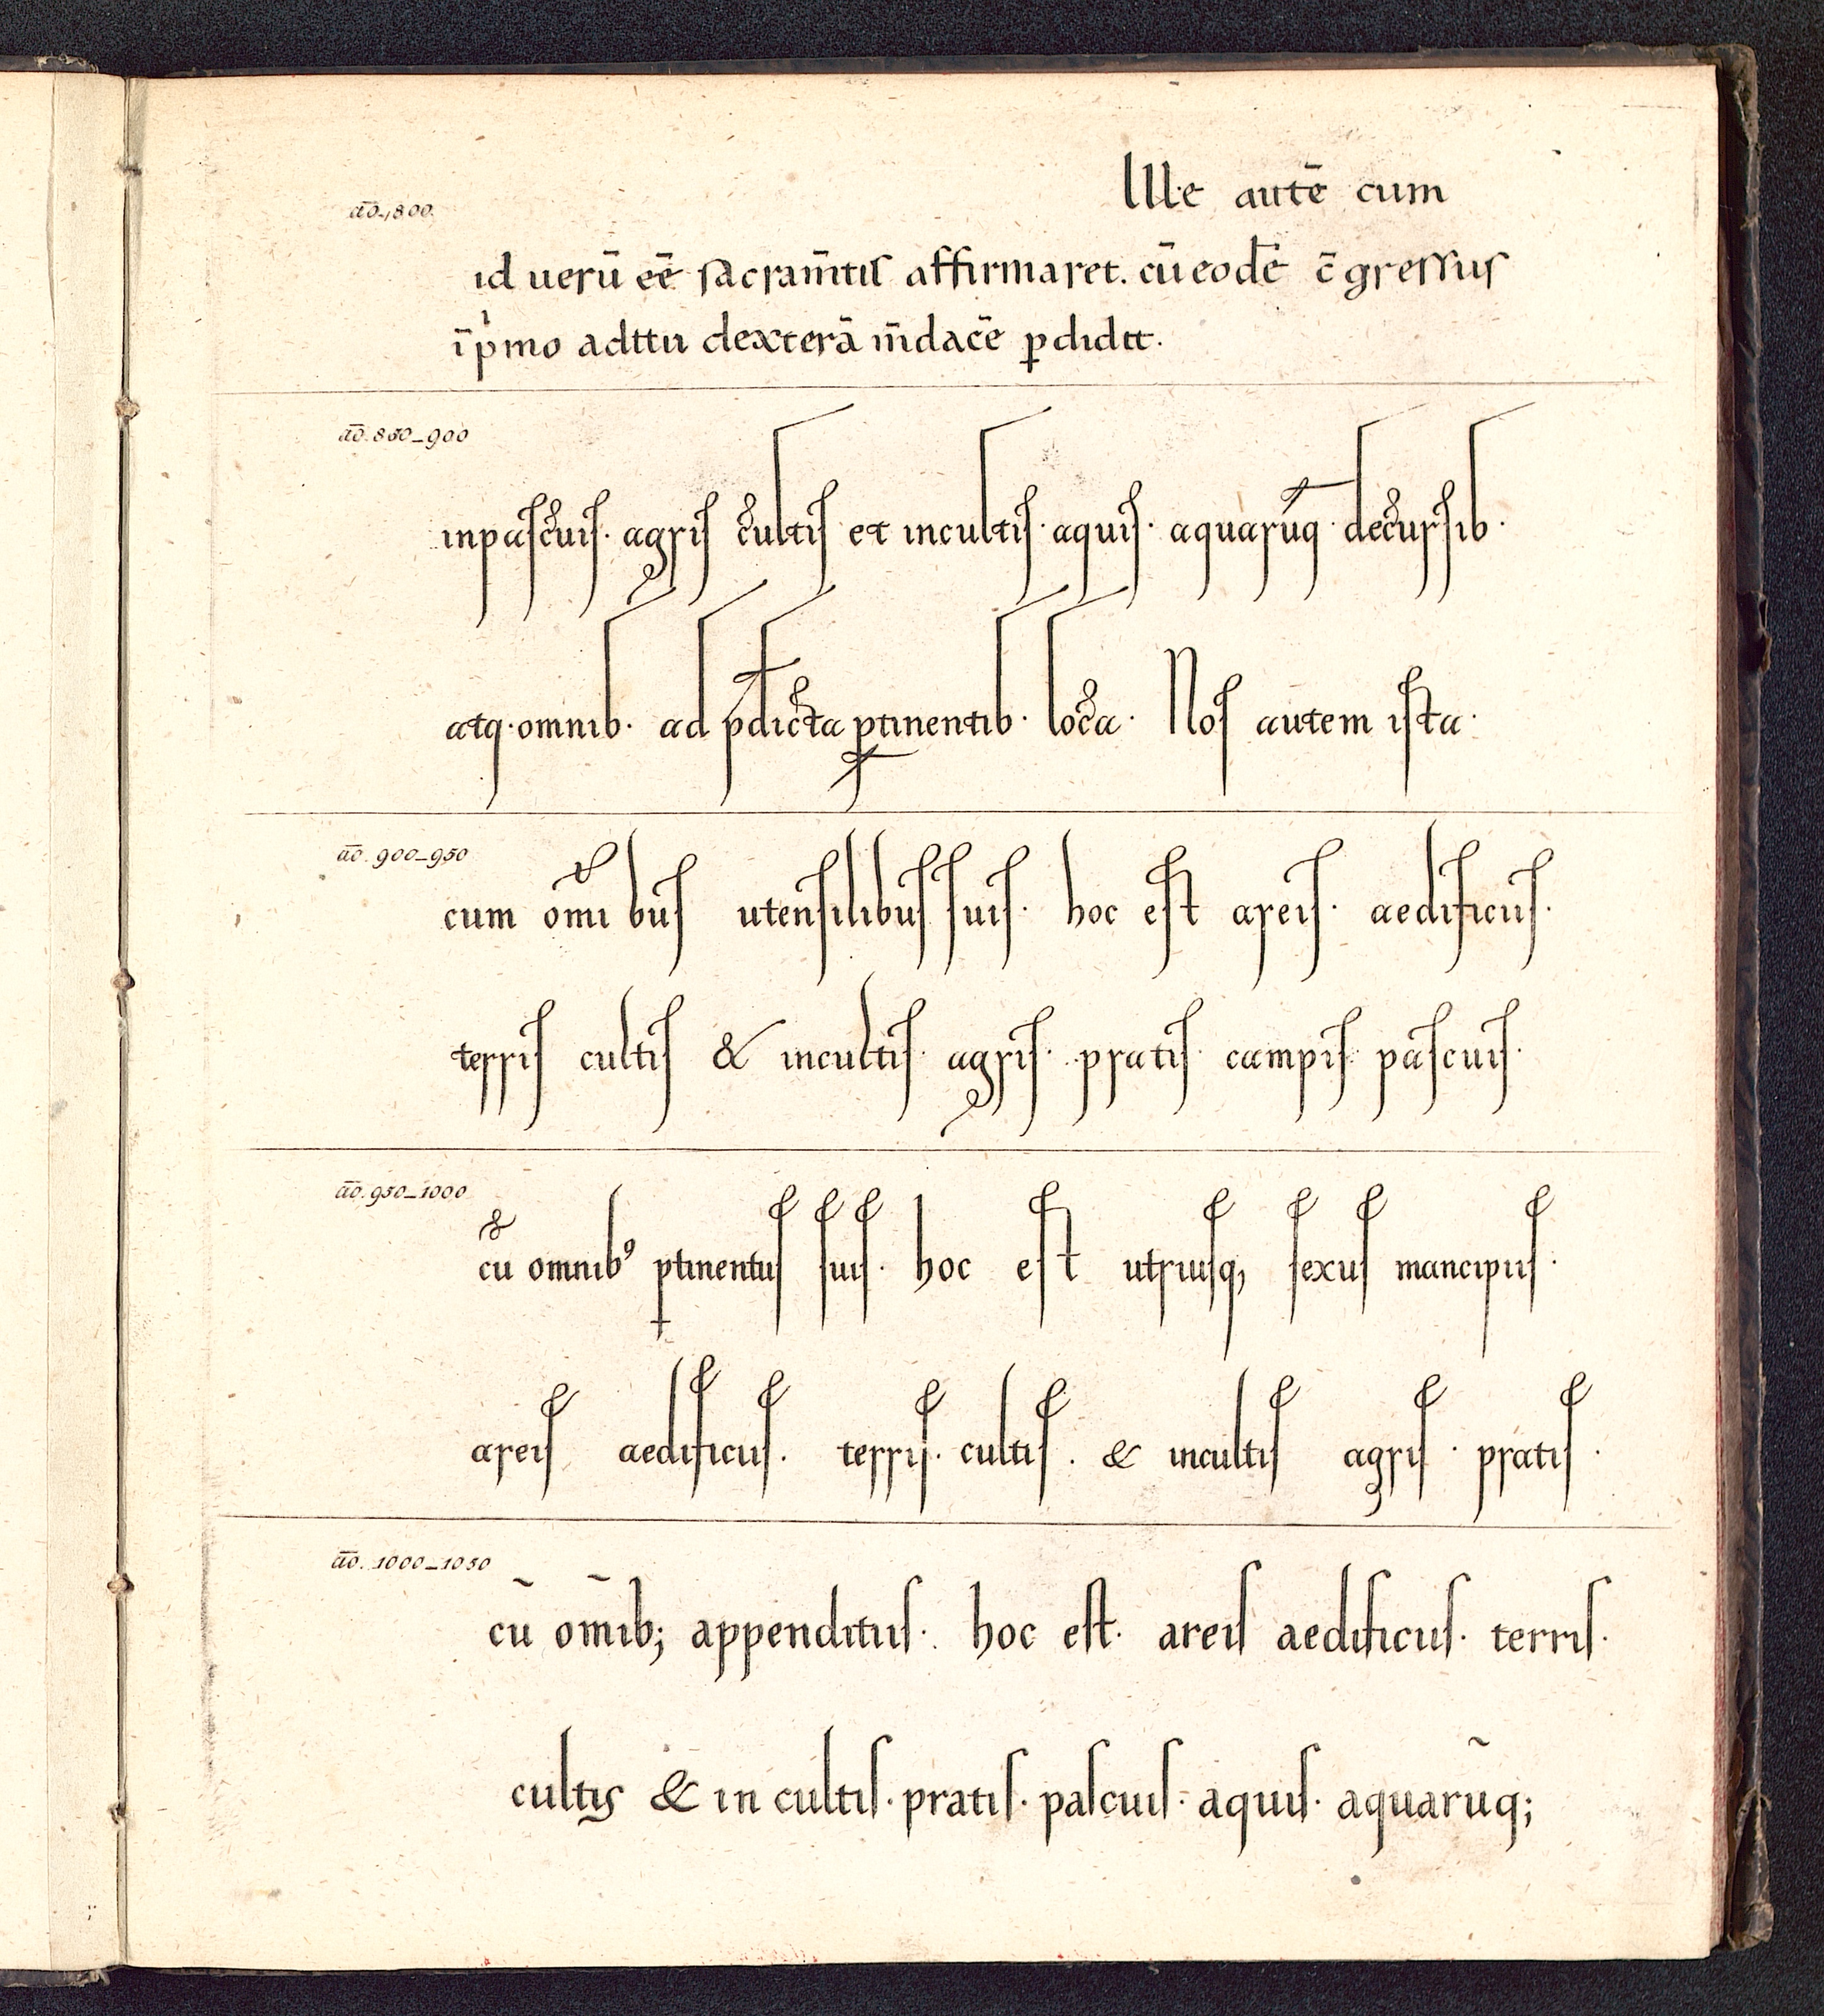 Ille autē cum
a͞o. 800.
id uerū eē sacram̄tis affirmaret. cū eodē c̄gressus
īpͥmo adttu dexterā m̄dacē ꝑdidit.
a͞o. 850_900
inpascuis· agris cultis et incultis· aquis· aquarūq· decursib·
atq· omnib· ad p̄dicta ꝑtinentib· loca· Nos autem ista·
a͞o. 900_950
cum om̄ibus utensilibus suis· hoc est areis· aedificiis·
terris cultis & incultis· agris· pratis· campis· pascuis·
a͞o. 950_1000
cū omnibꝰ ꝑtinentiis suis· hoc est utriusq, sexus mancipiis·
areis aedificiis· terris· cultis· & incultis agris· pratis·
a͞o. 1000_1050
cū om̄ib; appenditiis· hoc est· areis aedificiis· terris·
cultis & in cultis· pratis· pascuis· aquis· aquarūq;